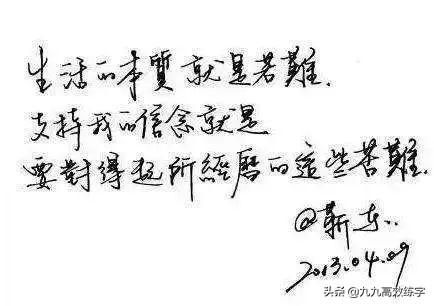 生活的本質就是苦難.
支持我的信念就是
要對得起所經歷的這些苦難.
@靳东..
2013.04.09
头条 @九九高效练字